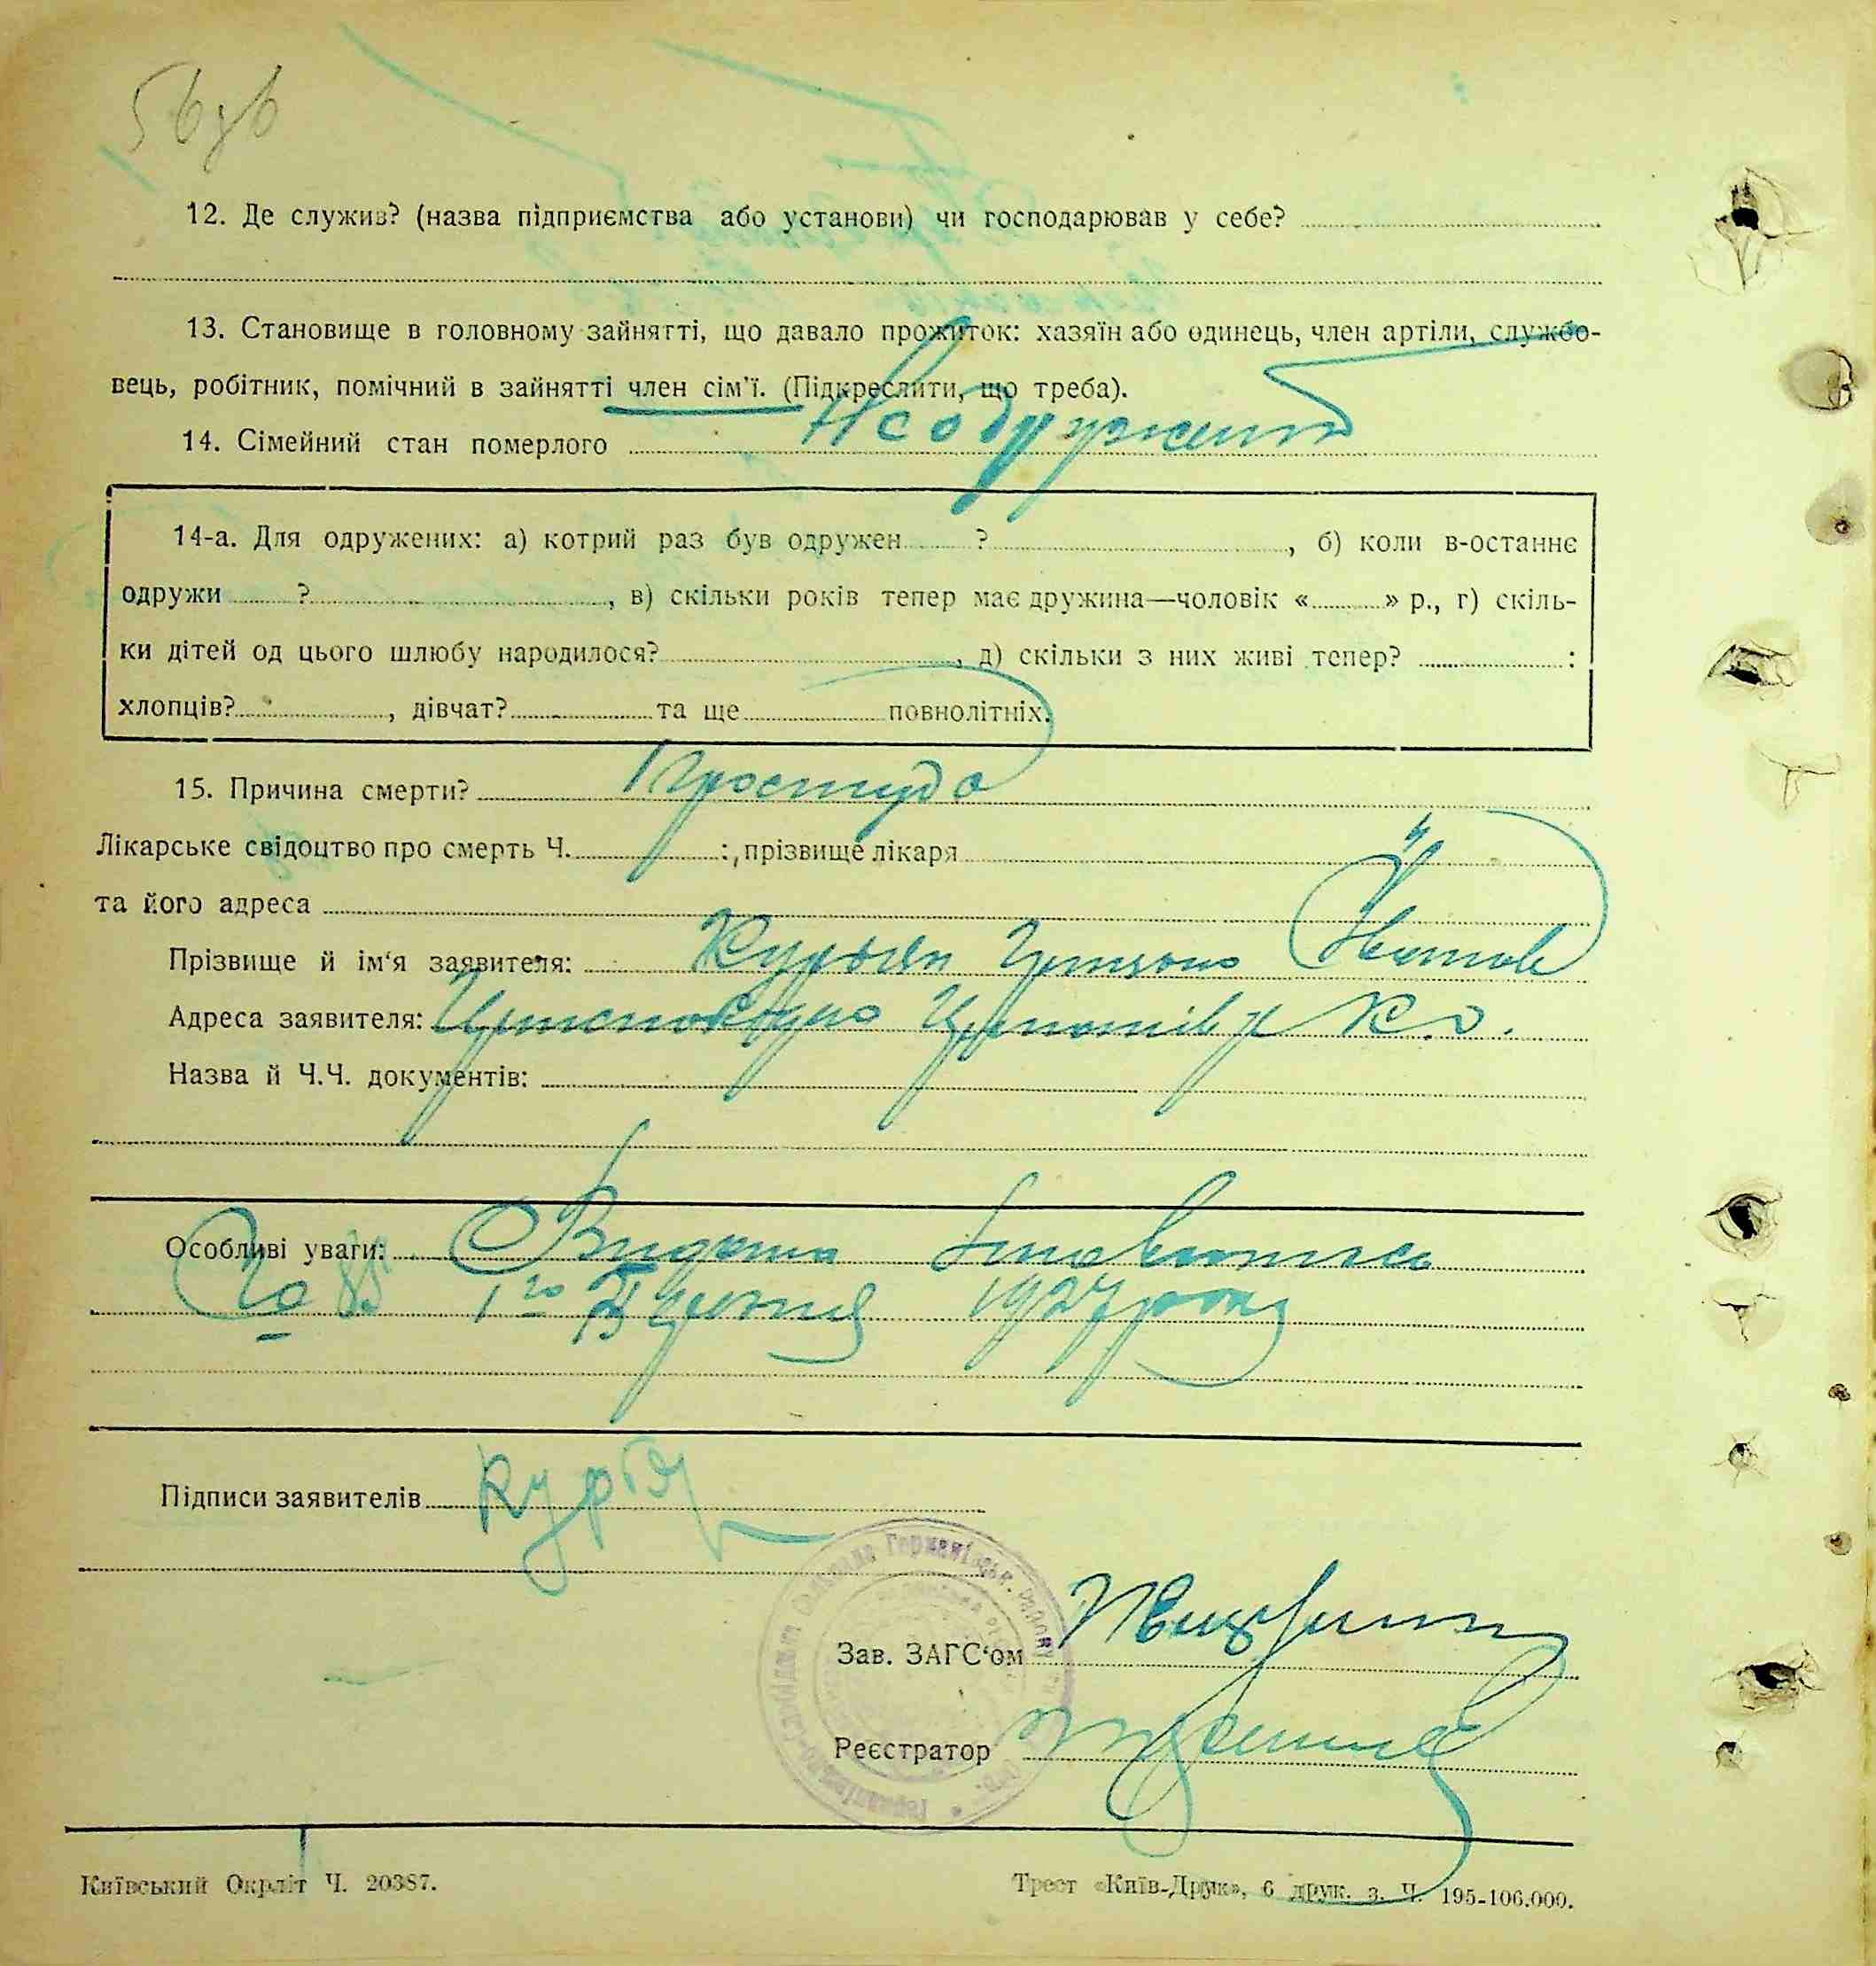 56 зв
12. Де служив? (назва підприємства або установи) чи господарював у себе?
13. Становище в головному зайнятті, що давало прожиток: хазяїн або одинець, член артіли, службо-
вець, робітник, помічний в зайнятті член сім'ї. (Підкреслити, що треба).
14. Сімейний стан померлого Неодружений
14-а. Для одружених: а) котрий раз був одружен ? , б) коли в-останнє
одружи ? , в) скільки років тепер має дружина—чоловік « » р., г) скіль-
ки дітей од цього шлюбу народилося? , д) скільки з них живі тепер? :
хлопців? , дівчат? та ще повнолітніх.
15. Причина смерти? Простуда
Лікарське свідоцтво про смерть Ч. : , прізвище лікаря
та його адреса
Прізвище й ім'я заявителя:
Адреса заявителя:
Назва й Ч.Ч. документів:
Особливі уваги: Видана
1го 1927 року
Підписи заявителів
Зав. ЗАГС'ом
Реєстратор
Київський Окрліт Ч. 20387.
Трест «Київ-Друк», 6 друк. з. Ч. 195-106.000.